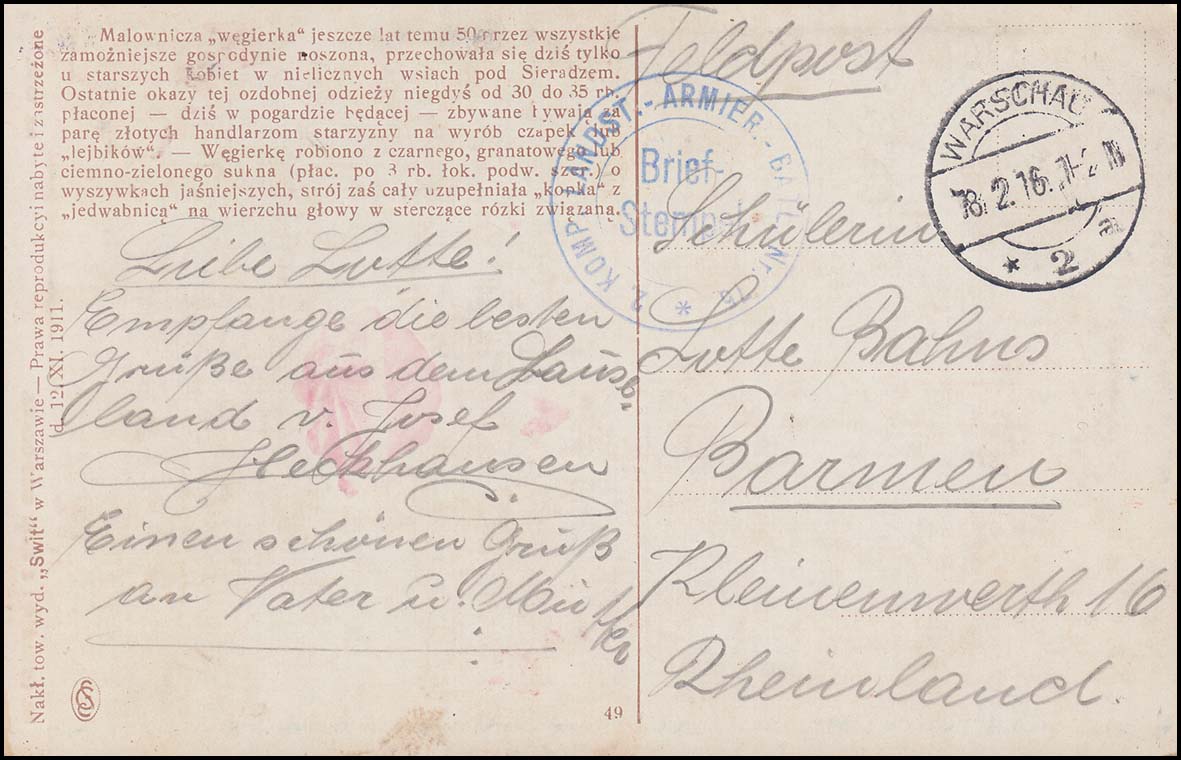 Malownicza „węgierka“ jeszcze lat temu 50 przez wszystkie
zamożniejsze gospodynie noszona, przechowała się dziś tylko
u starszych kobiet w nielicznych wsiach pod Sieradzem.
Ostatnie okazy tej ozdobnej odzieży niegdyś od 30 do 35 rb.
płaconej — dziś w pogardzie będącej — zbywane bywają za
parę złotych handlarzom starzyzny na wyrób czapek lub
„lejbików“. — Węgierkę robiono z czarnego, granatowego lub
ciemno-zielonego sukna (płac. po 3 rb. łok. podw. szer.) o
wyszywkach jaśniejszych, strój zaś cały uzupełniała „kopka“ z
„jedwabnicą“ na wierzchu głowy w sterczące rózki związaną.
Liebe Lotte!
Empfange die besten
Grüße aus dem Lause-
land v. Josef
Heckhausen
Einen schönen Gruß
an Vater u. Mutter
Nakł. tow. wyd. „Świt“ w Warszawie — Prawa reprodukcyi nabyte i zastrzeżone
(d. 12/XI. 1911.
49
Feldpost
2. KOMP. LANDST.-ARMIER.-BATL. Nr.
Brief-
Stempel
WARSCHAU
18.2.16.
* 2 a
Schülerin
Lotte Bahns
Barmen
Kleinenwerth 16
Rheinland.